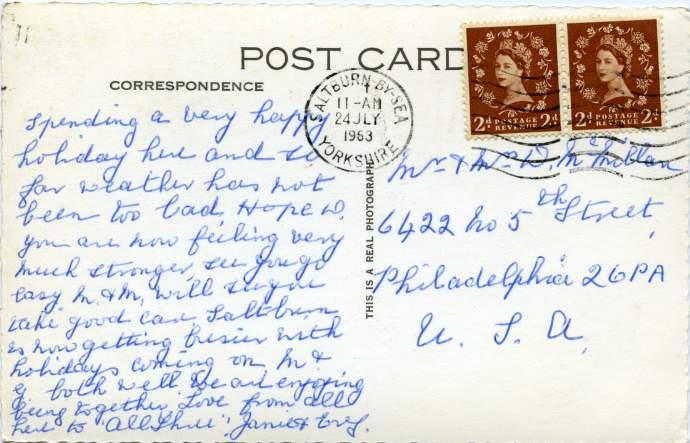 POST CARD
CORRESPONDENCE
SALTBURN-BY-SEA
11-AM
24 JLY
1963
YORKSHIRE
2d POSTAGE REVENUE 2d
2d POSTAGE REVENUE 2d
THIS IS A REAL PHOTOGRAPH
Spending a very happy
holiday here and so
far weather has not
been too bad, Hope D.
you are now feeling very
much stronger, see you go
easy M. & M. will see you
take good care Saltburn
is now getting busier with
holidays coming on, M &
G. both well. We are enjoying
being together, Love from all
here to "All Three" Janie &
Mr & Mrs D. McMillan
6422 No 5th Street,
Philadelphia 26 PA
U. S. A,